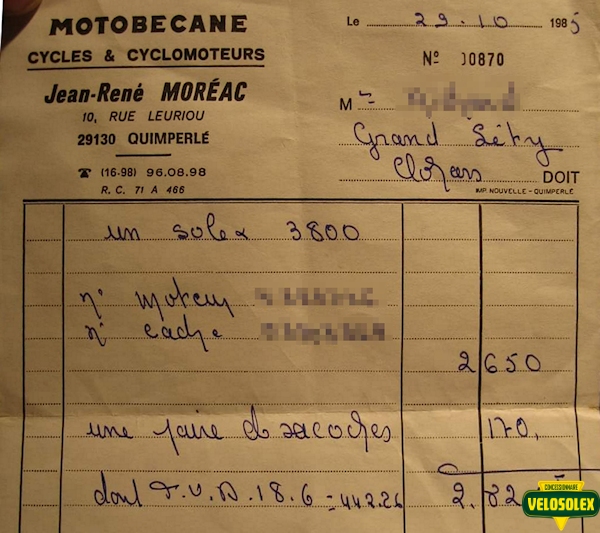 MOTOBECANE
CYCLES & CYCLOMOTEURS
Jean-René MORÉAC
10, RUE LEURIOU
29130 QUIMPERLÉ
☎ (16-98) 96.08.98
R. C. 71 A 466
Le 29.10 1985
Nº 00870
M
Grand
DOIT
IMP. NOUVELLE - QUIMPERLÉ
un solex 3800
n° moteur
n° cadre
2 650
une paire de sacoches 170,
dont T.V.A. 18.6 = 442.26 2.82
CONCESSIONNAIRE
VELOSOLEX